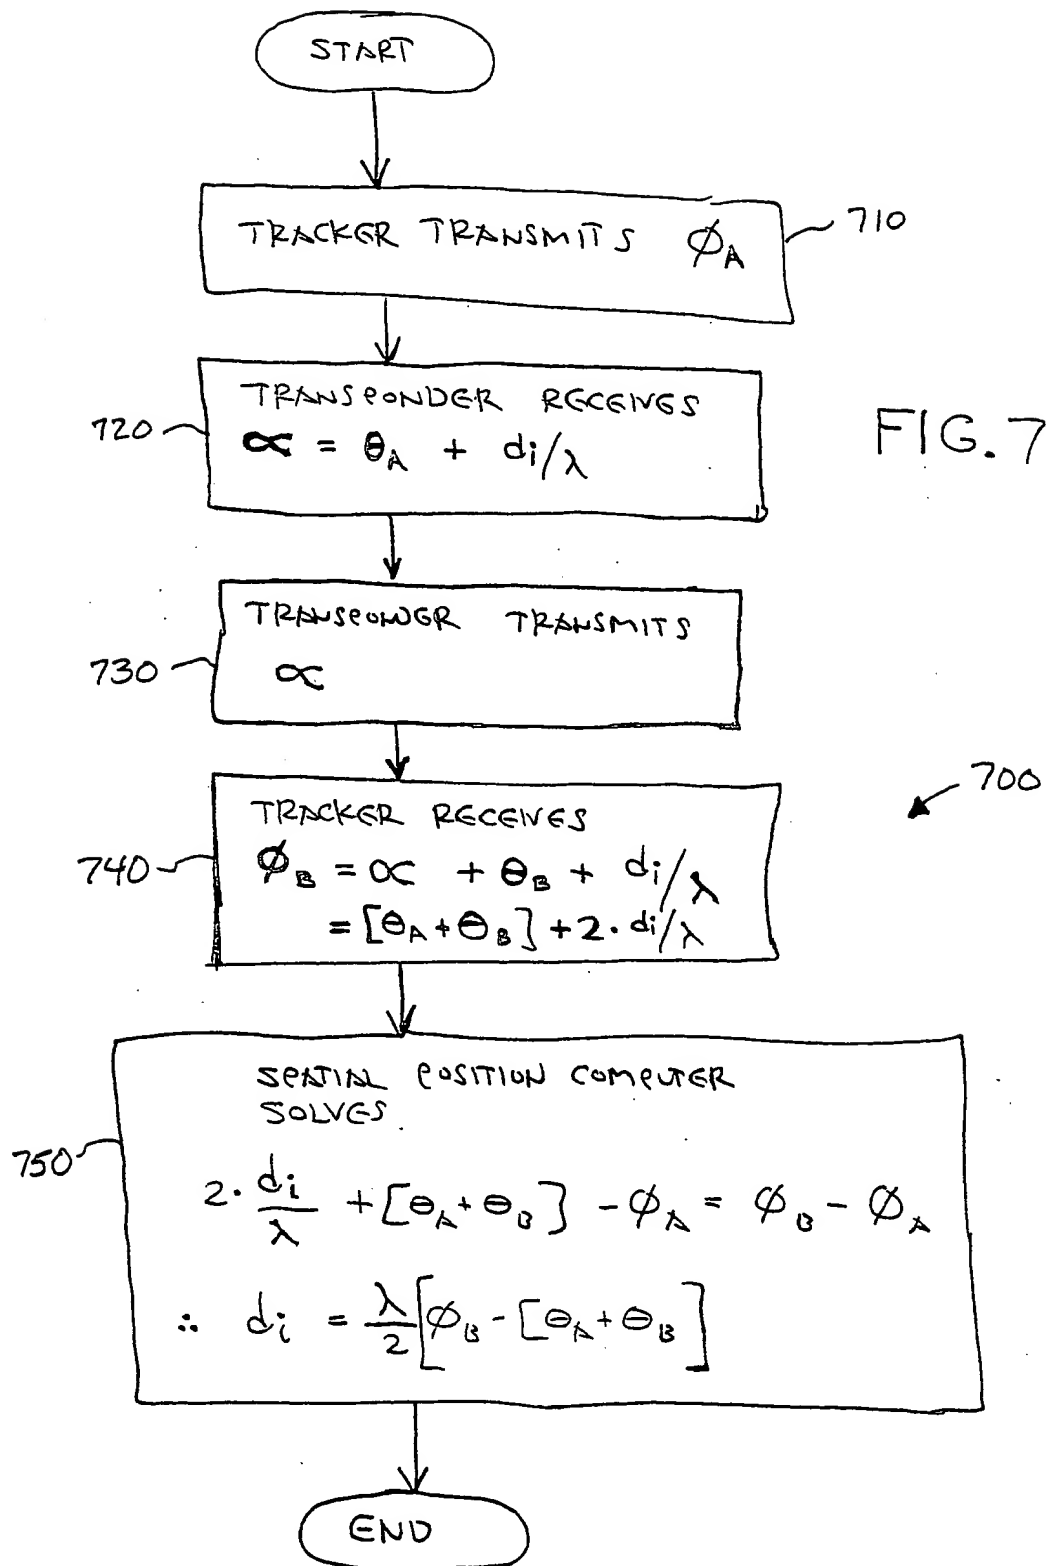 START
TRACKER TRANSMITS ϕ_A
710
TRANSPONDER RECEIVES
α = θ_A + di/λ
720
FIG. 7
TRANSPONDER TRANSMITS
α
730
700
TRACKER RECEIVES
ϕ_B = α + θ_B + di/λ
= [θ_A + θ_B] + 2 · di/λ
740
SPATIAL POSITION COMPUTER
SOLVES
750
2 · di/λ + [θ_A + θ_B] - ϕ_A = ϕ_B - ϕ_A
∴ di = λ/2 [ϕ_B - [θ_A + θ_B]
END